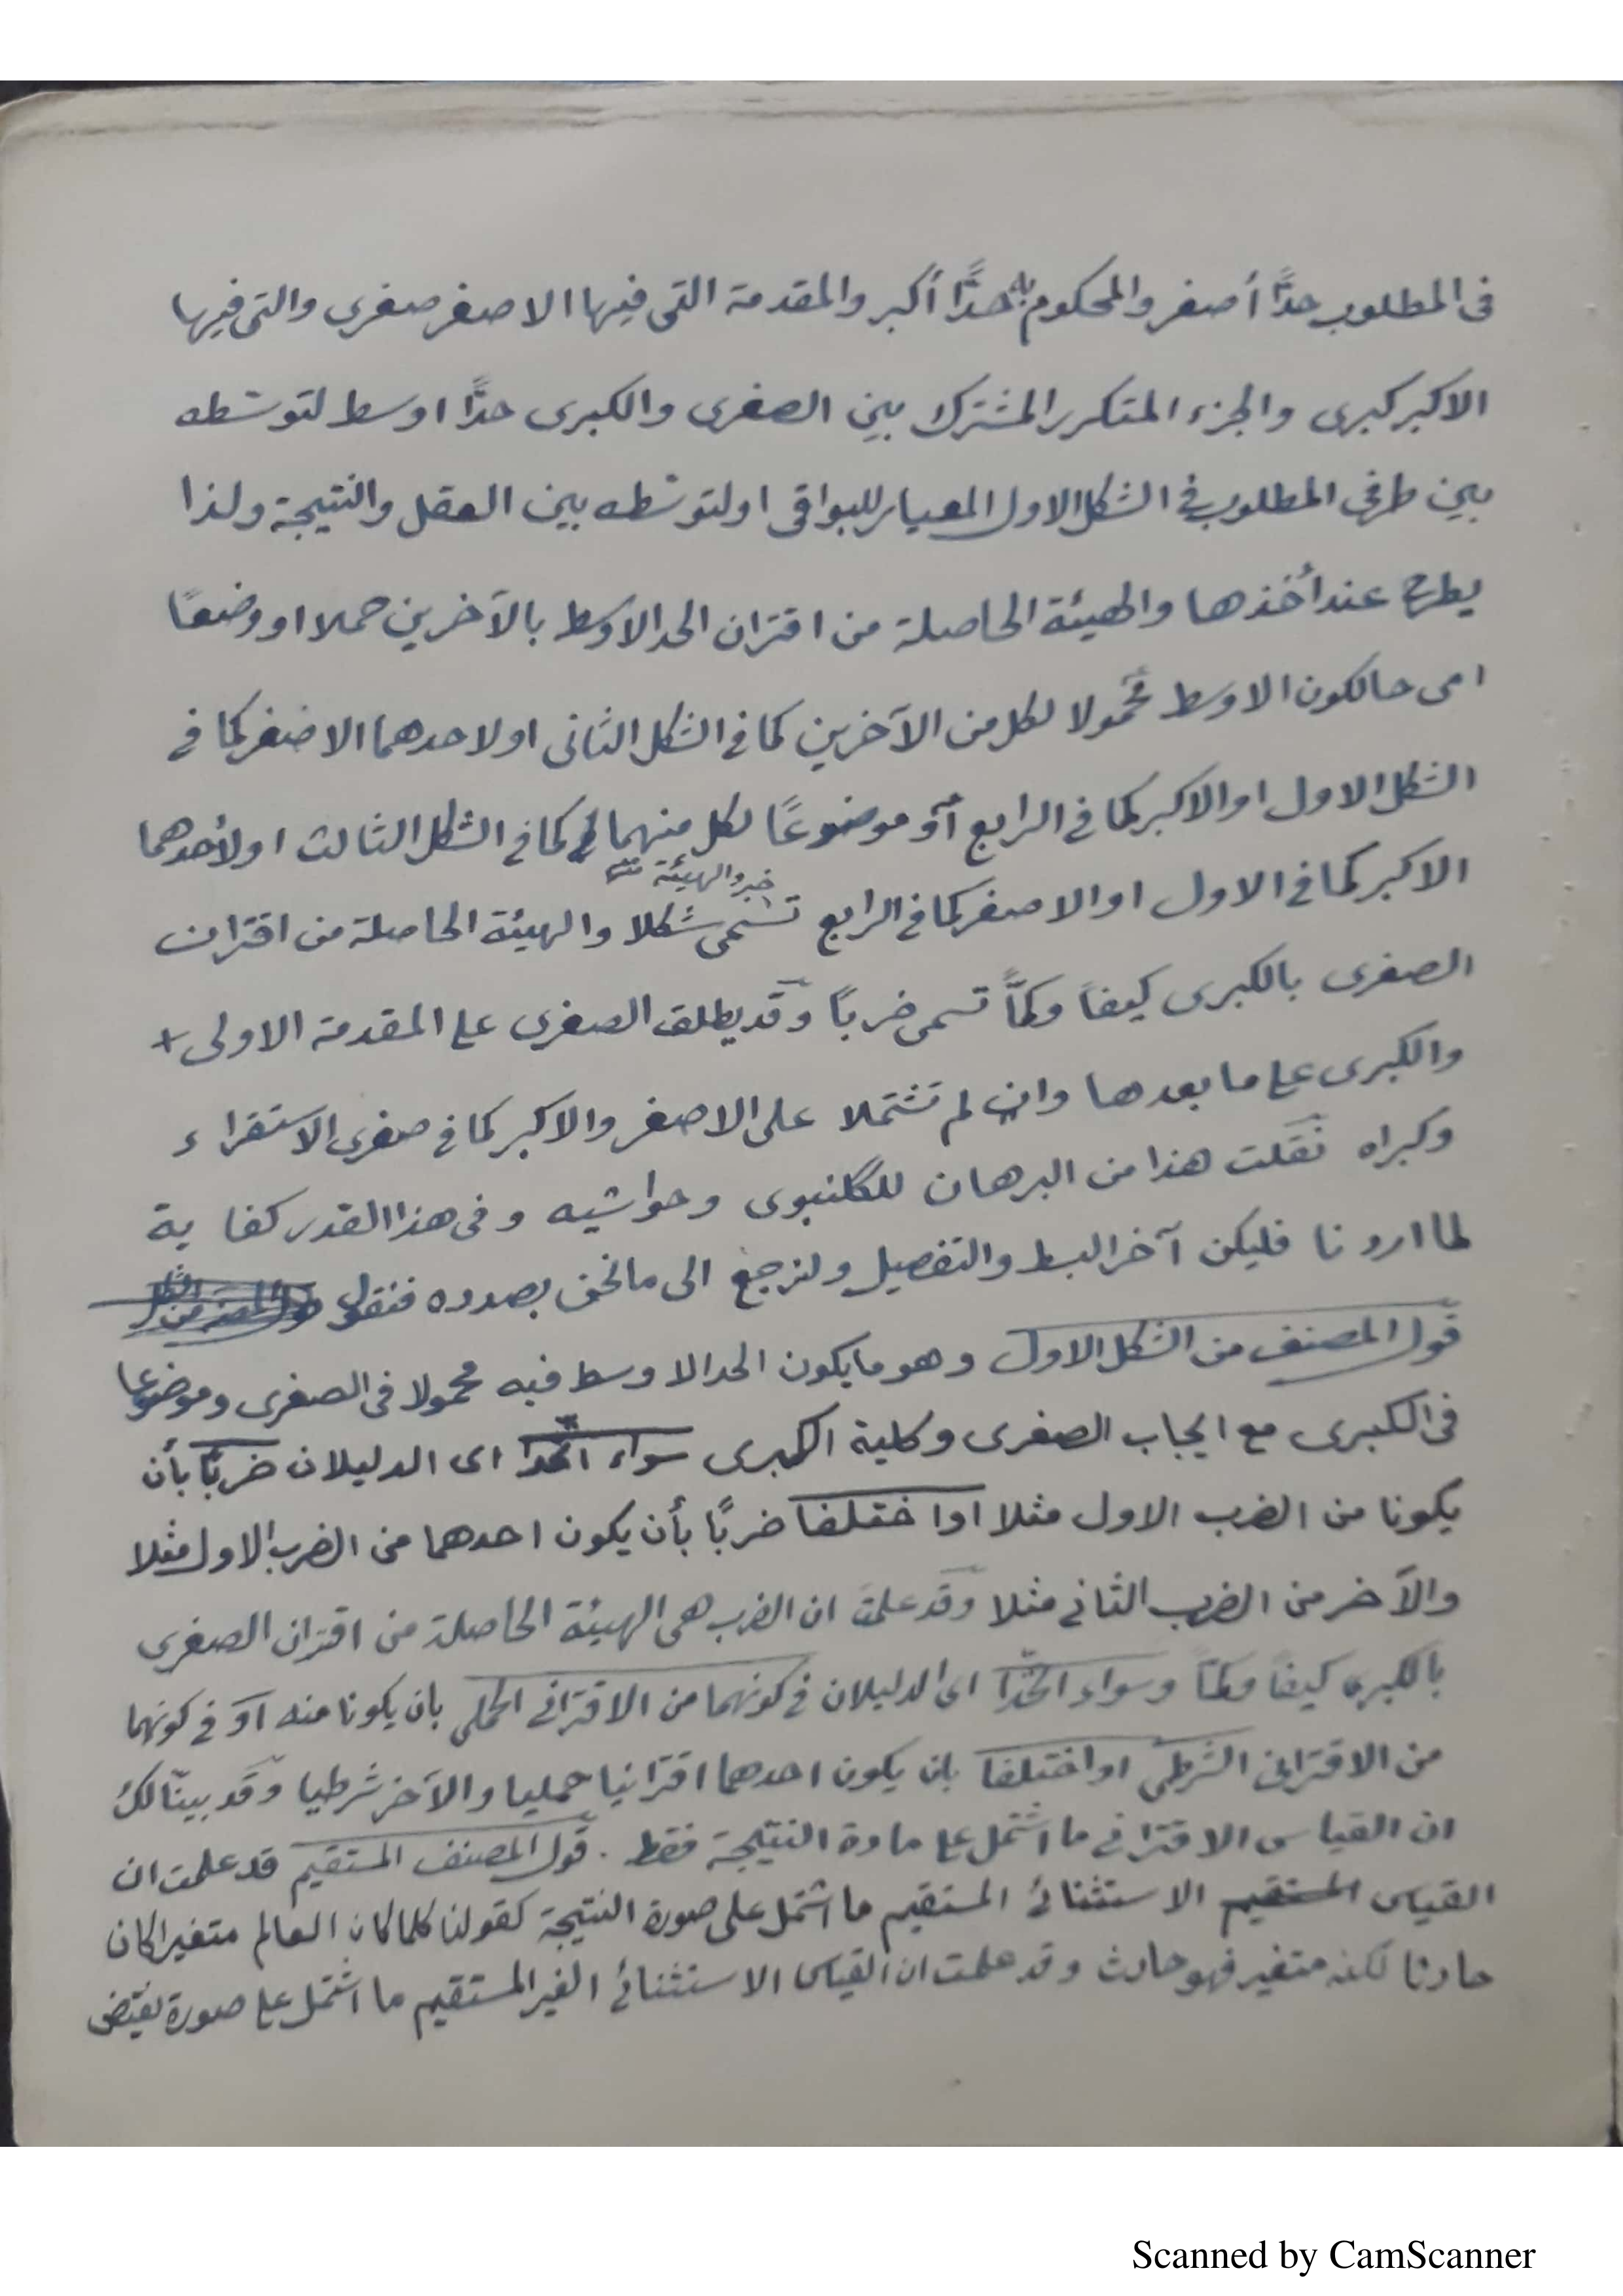 فى المطلوب حدًّا أصغر والمحكوم به حدًّا أكبر والمقدمة التى فيها الاصغر صغرى والتى فيها
الاكبر كبرى والجزء المتكرر المشترك بين الصغرى والكبرى حدًّا اوسط لتوسّطه
بين طرفى المطلوب فى الشكل الاول المعيار للبواقى او لتوسّطه بين العقل والنتيجة ولذا
يطرح عند أخذها والهيئة الحاصلة من اقتران الحد الاوسط بالآخرين حملا او وضعًا
اى حالكون الاوسط محمولا لكل من الآخرين كما فى الشكل الثانى او لاحدهما الاصغر كما فى
الشكل الاول او الاكبر كما فى الرابع أو موضوعًا لكل منهما كما فى الشكل الثالث او لأحدهما
خبر والهيئة
الاكبر كما فى الاول او الاصغر كما فى الرابع تسمى شكلا والهيئة الحاصلة من اقتران
الصغرى بالكبرى كيفًا وكمًّا تسمى ضربًا وقد يطلق الصغرى على المقدمة الاولى +
والكبرى على ما بعدها وان لم تشتملا على الاصغر والاكبر كما فى صغرى الاستقراء
وكبراه نقلت هذا من البرهان للگلنبوى وحواشيه وفى هذا القدر كفاية
لما اردنا فليكن آخر البسط والتفصيل ولنرجع الى ما نحن بصدده فنقول
قول المصنف من الشكل الاول وهو ما يكون الحد الاوسط فيه محمولا فى الصغرى وموضوعا
فى الكبرى مع ايجاب الصغرى وكلية الكبرى سواء اتحدا اى الدليلان ضربًا بأن
يكونا من الضرب الاول مثلا او اختلفا ضربًا بأن يكون احدهما من الضرب الاول مثلا
والآخر من الضرب الثانى مثلا وقد علمت ان الضرب هى الهيئة الحاصلة من اقتران الصغرى
بالكبرى كيفًا وكمًّا وسواء اتحدا اى الدليلان فى كونهما من الاقترانى الحملى بان يكونا منه أو فى كونهما
من الاقترانى الشرطى او اختلفا بان يكون احدهما اقترانيا حمليا والآخر شرطيا وقد بينّا لك
ان القياس الاقترانى ما اشتمل على مادة النتيجة فقط . قول المصنف المستقيم قد علمت ان
القياس المستقيم الاستثنائى المستقيم ما اشتمل على صورة النتيجة كقولنا كلما كان العالم متغيرا كان
حادثا لكنه متغير فهو حادث وقد علمت ان القياس الاستثنائى الغير المستقيم ما اشتمل على صورة نقيض
Scanned by CamScanner